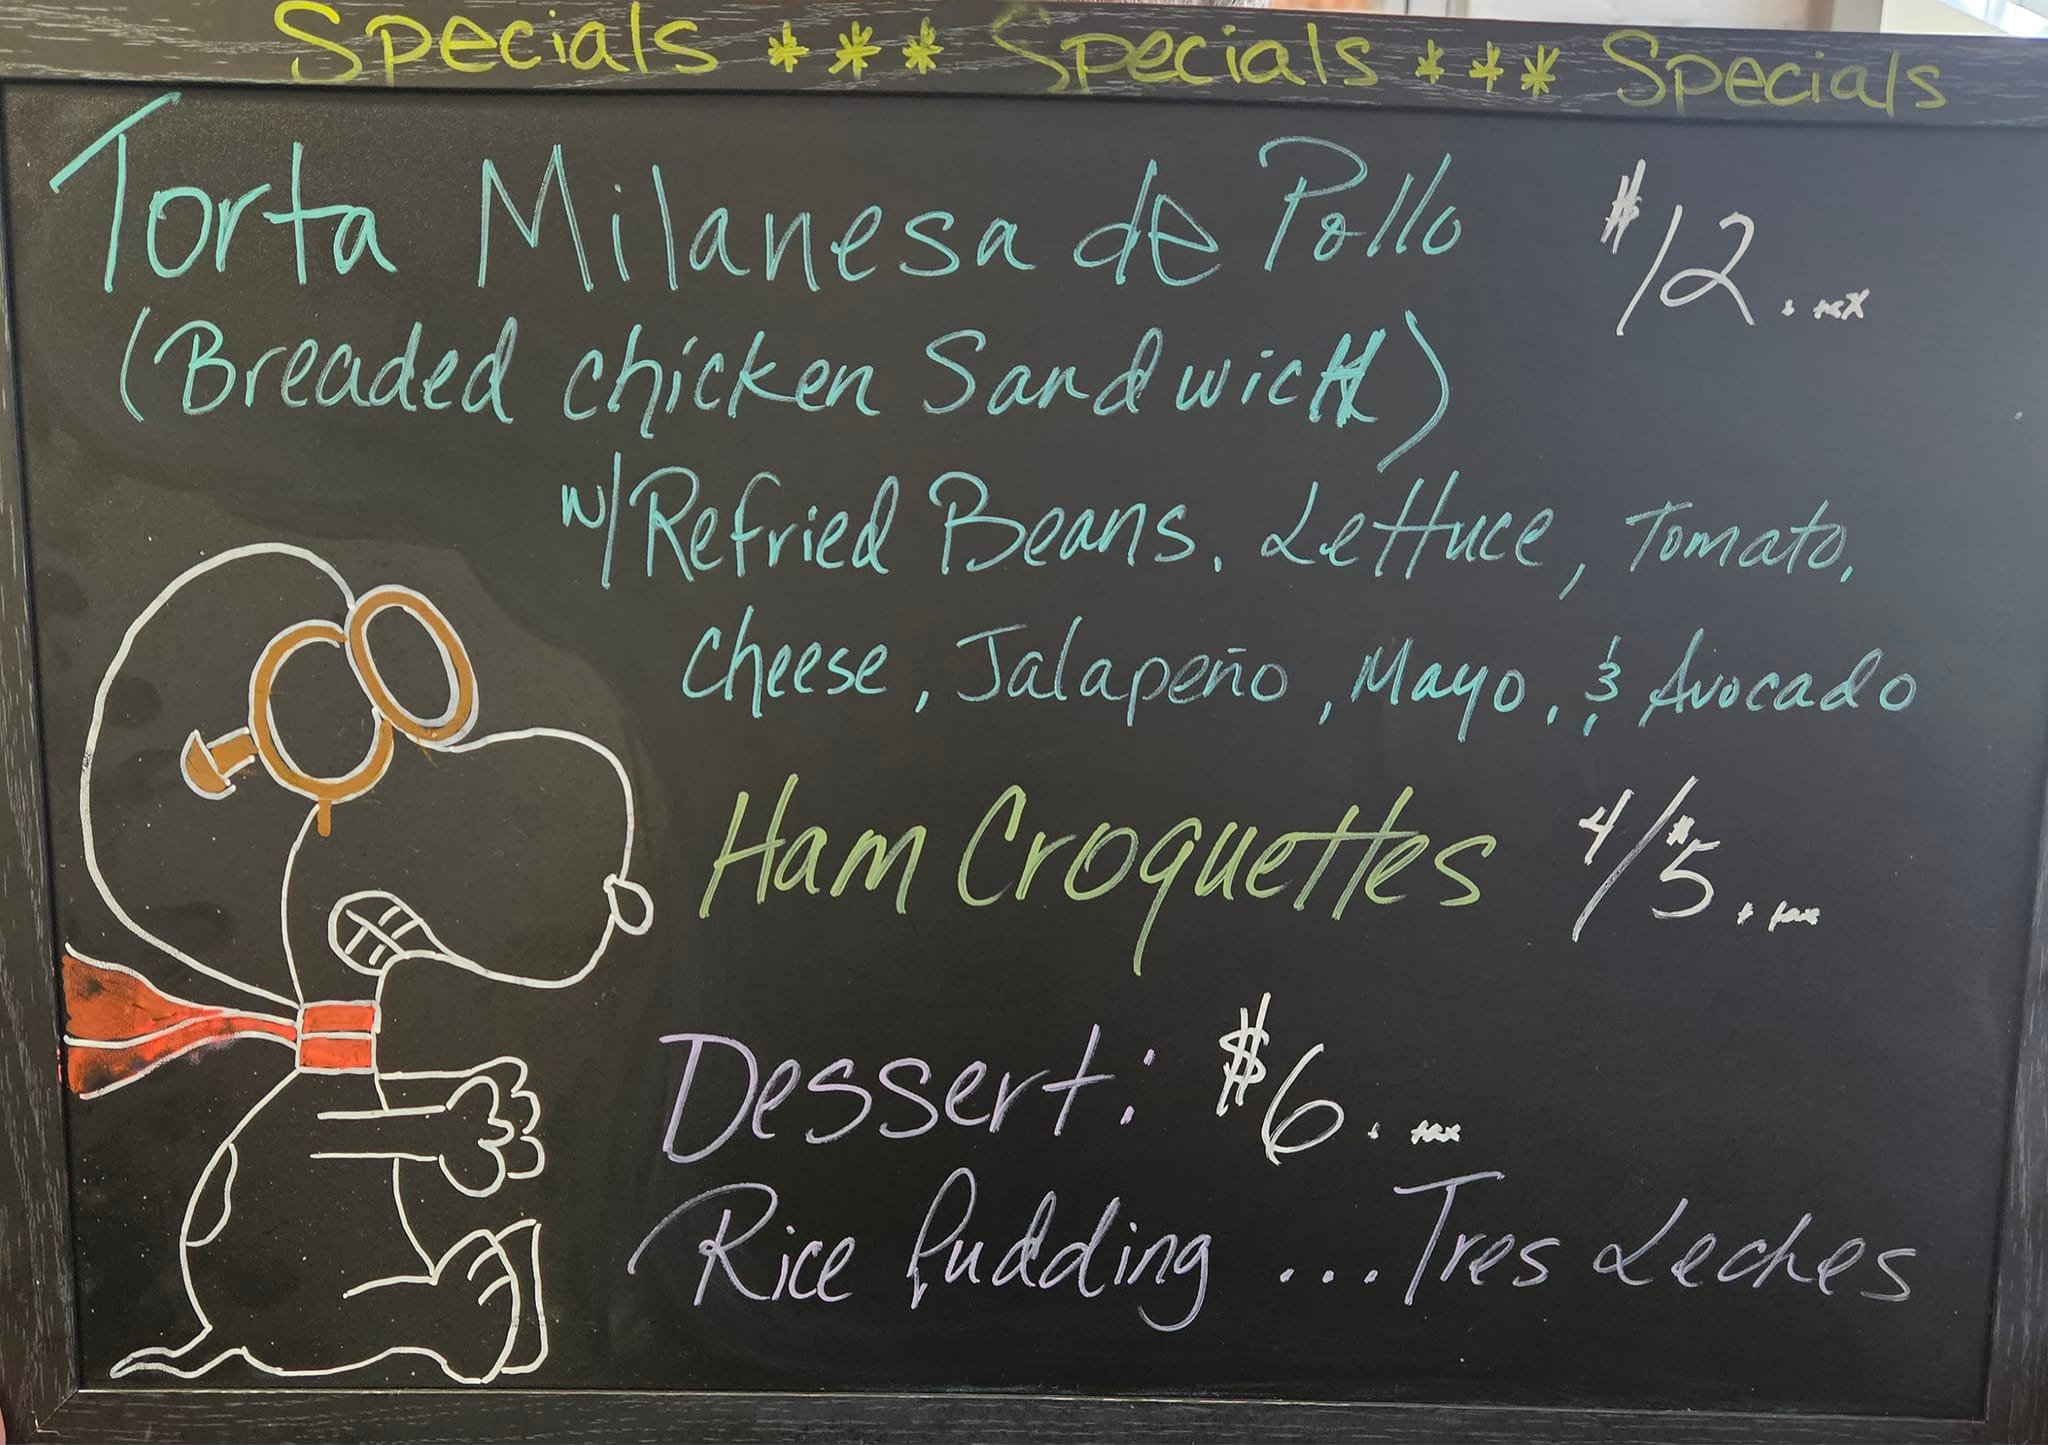 Specials *** Specials *** Specials
Torta Milanesa de Pollo $12. + tax
(Breaded chicken Sandwich)
w/ Refried Beans, Lettuce, Tomato,
Cheese, Jalapeño, Mayo, & Avocado
Ham Croquettes 4/$5. + tax
Dessert: $6. + tax
Rice Pudding ... Tres Leches